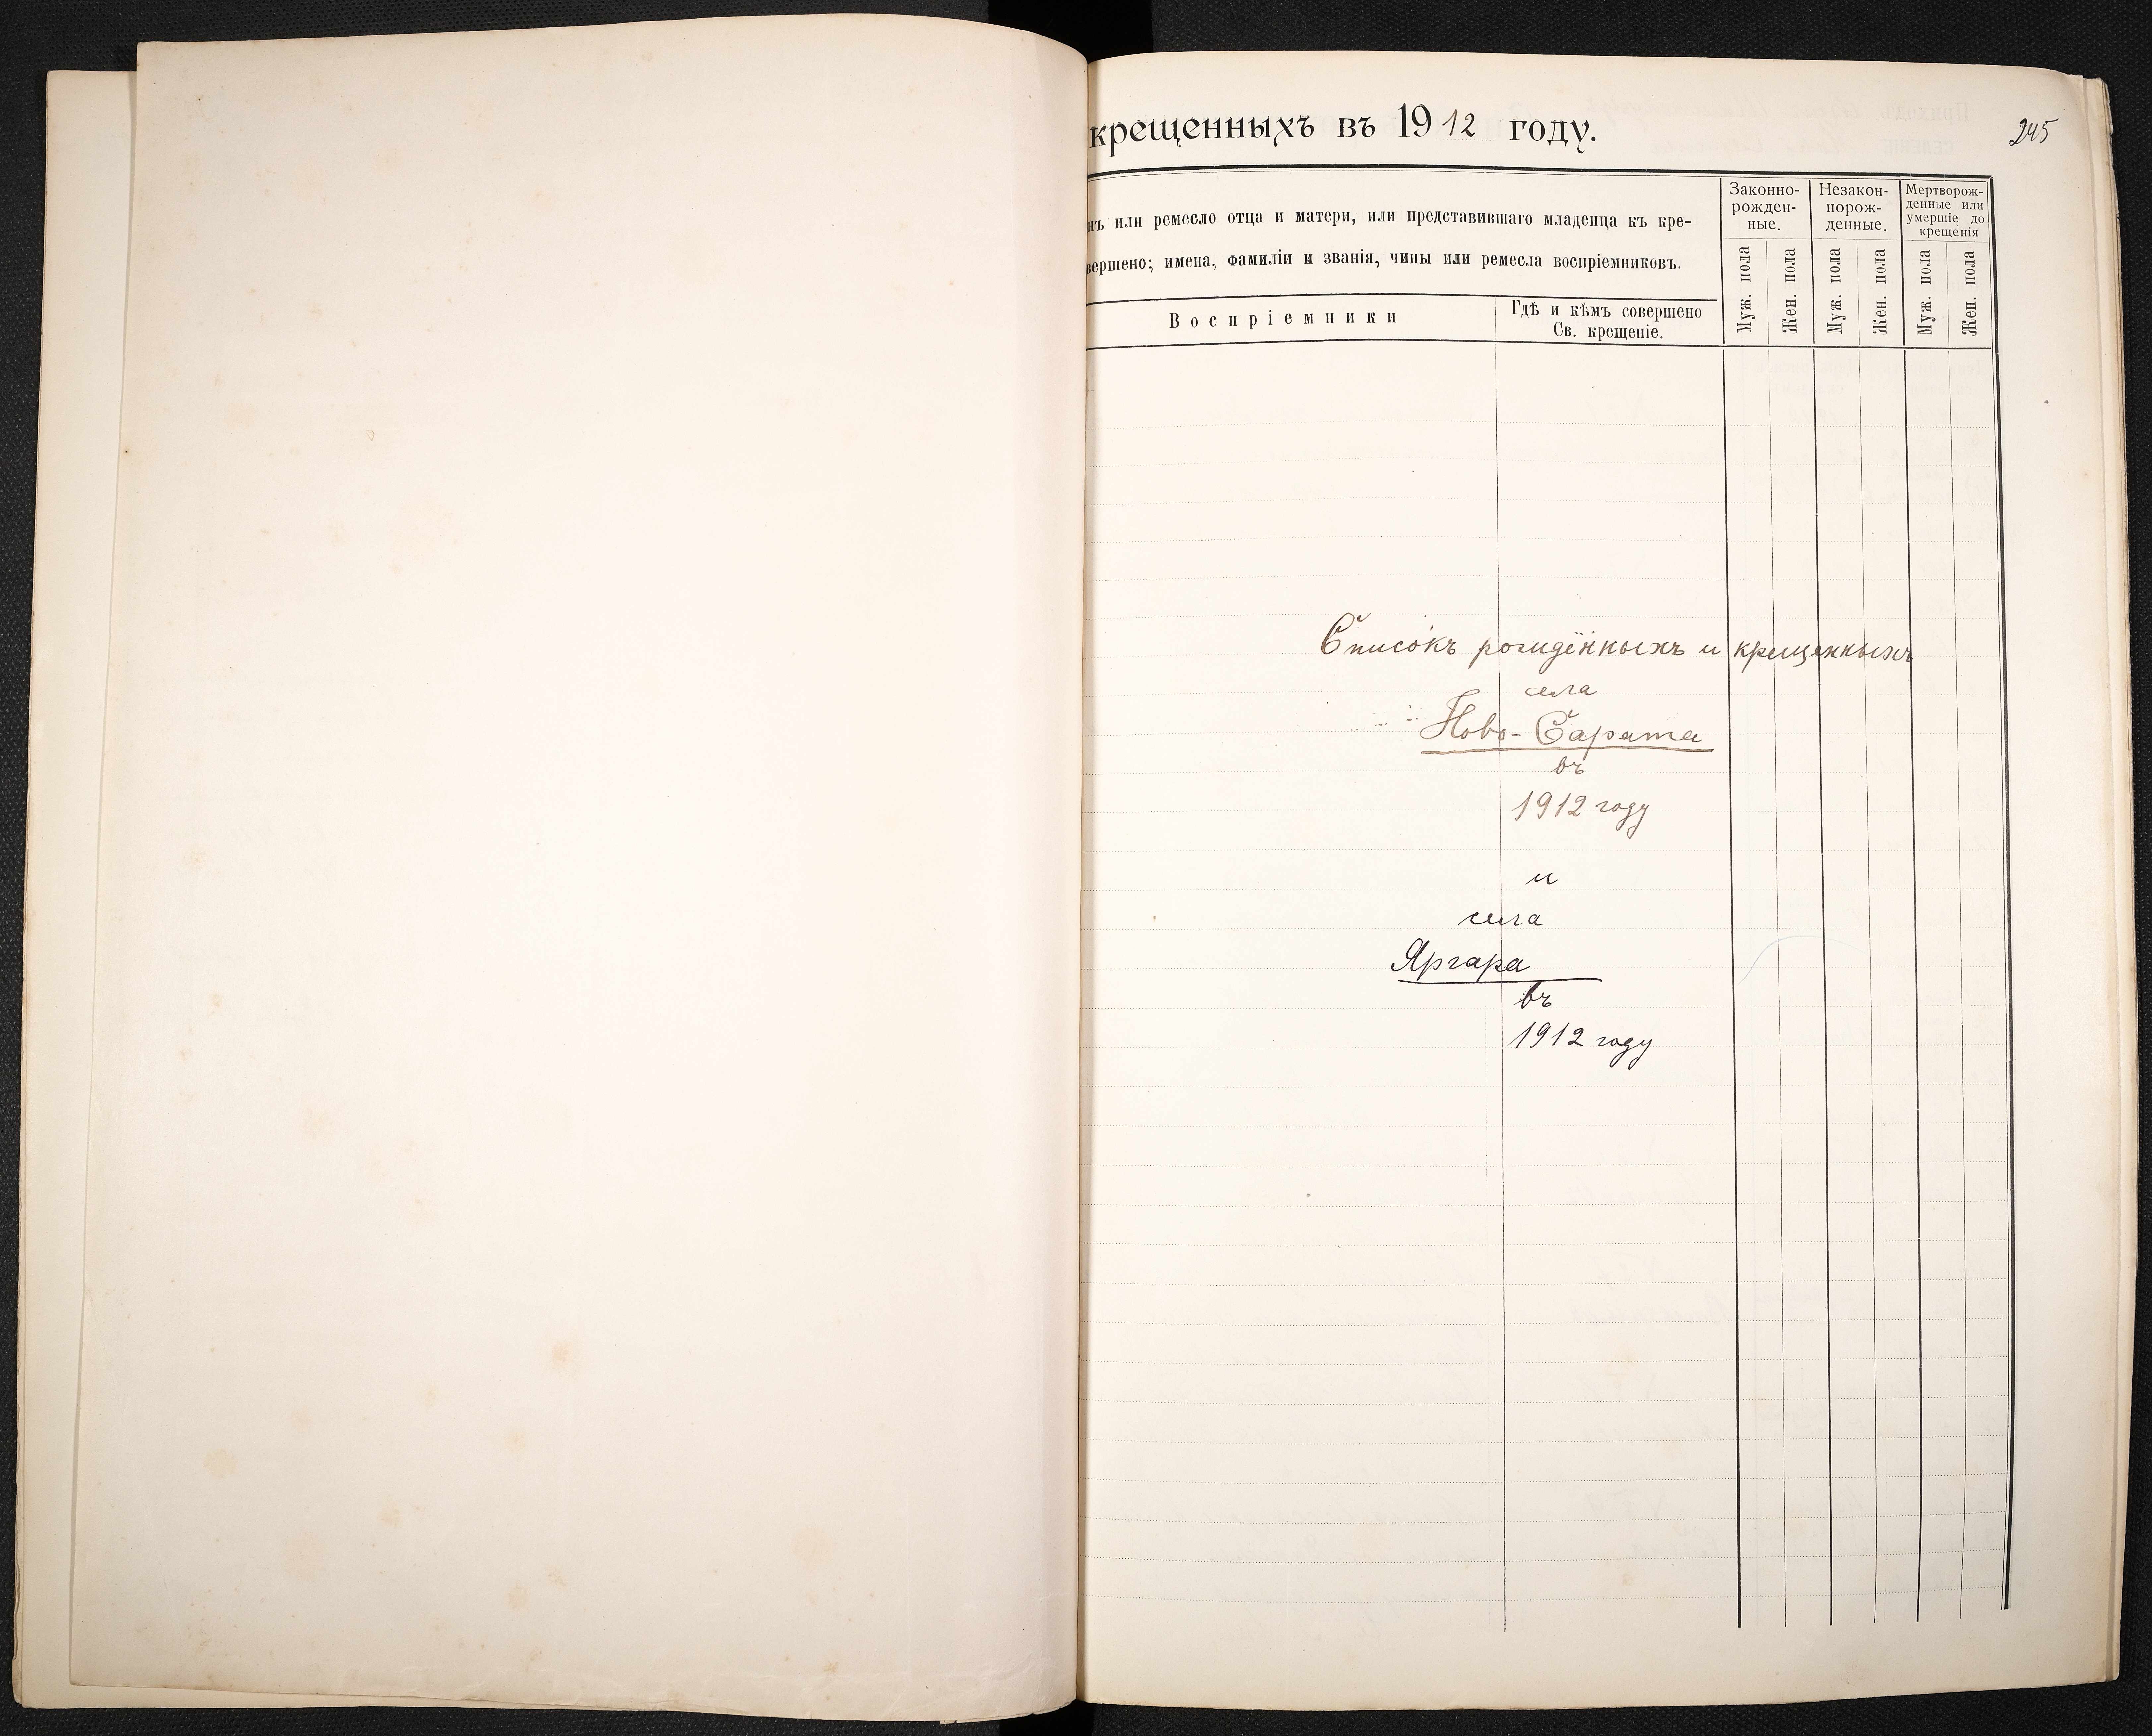 крещенныхъ въ 1912 году.
245
нъ или ремесло отца и матери, или представившаго младенца къ кре-
вершено; имена, фамиліи и званія, чины или ремесла воспріемниковъ.
Воспріемники
Гдѣ и кѣмъ совершено
Св. крещеніе.
Законно-
рожден-
ные.
Незакон-
норож-
денные.
Мертворож-
денные или
умершіе до
крещенія
Муж. пола
Жен. пола
Муж. пола
Жен. пола
Муж. пола
Жен. пола
Списокъ рожденныхъ и крещенныхъ
села
Ново-Сарата
въ
1912 году
и
села
Яргара
въ
1912 году